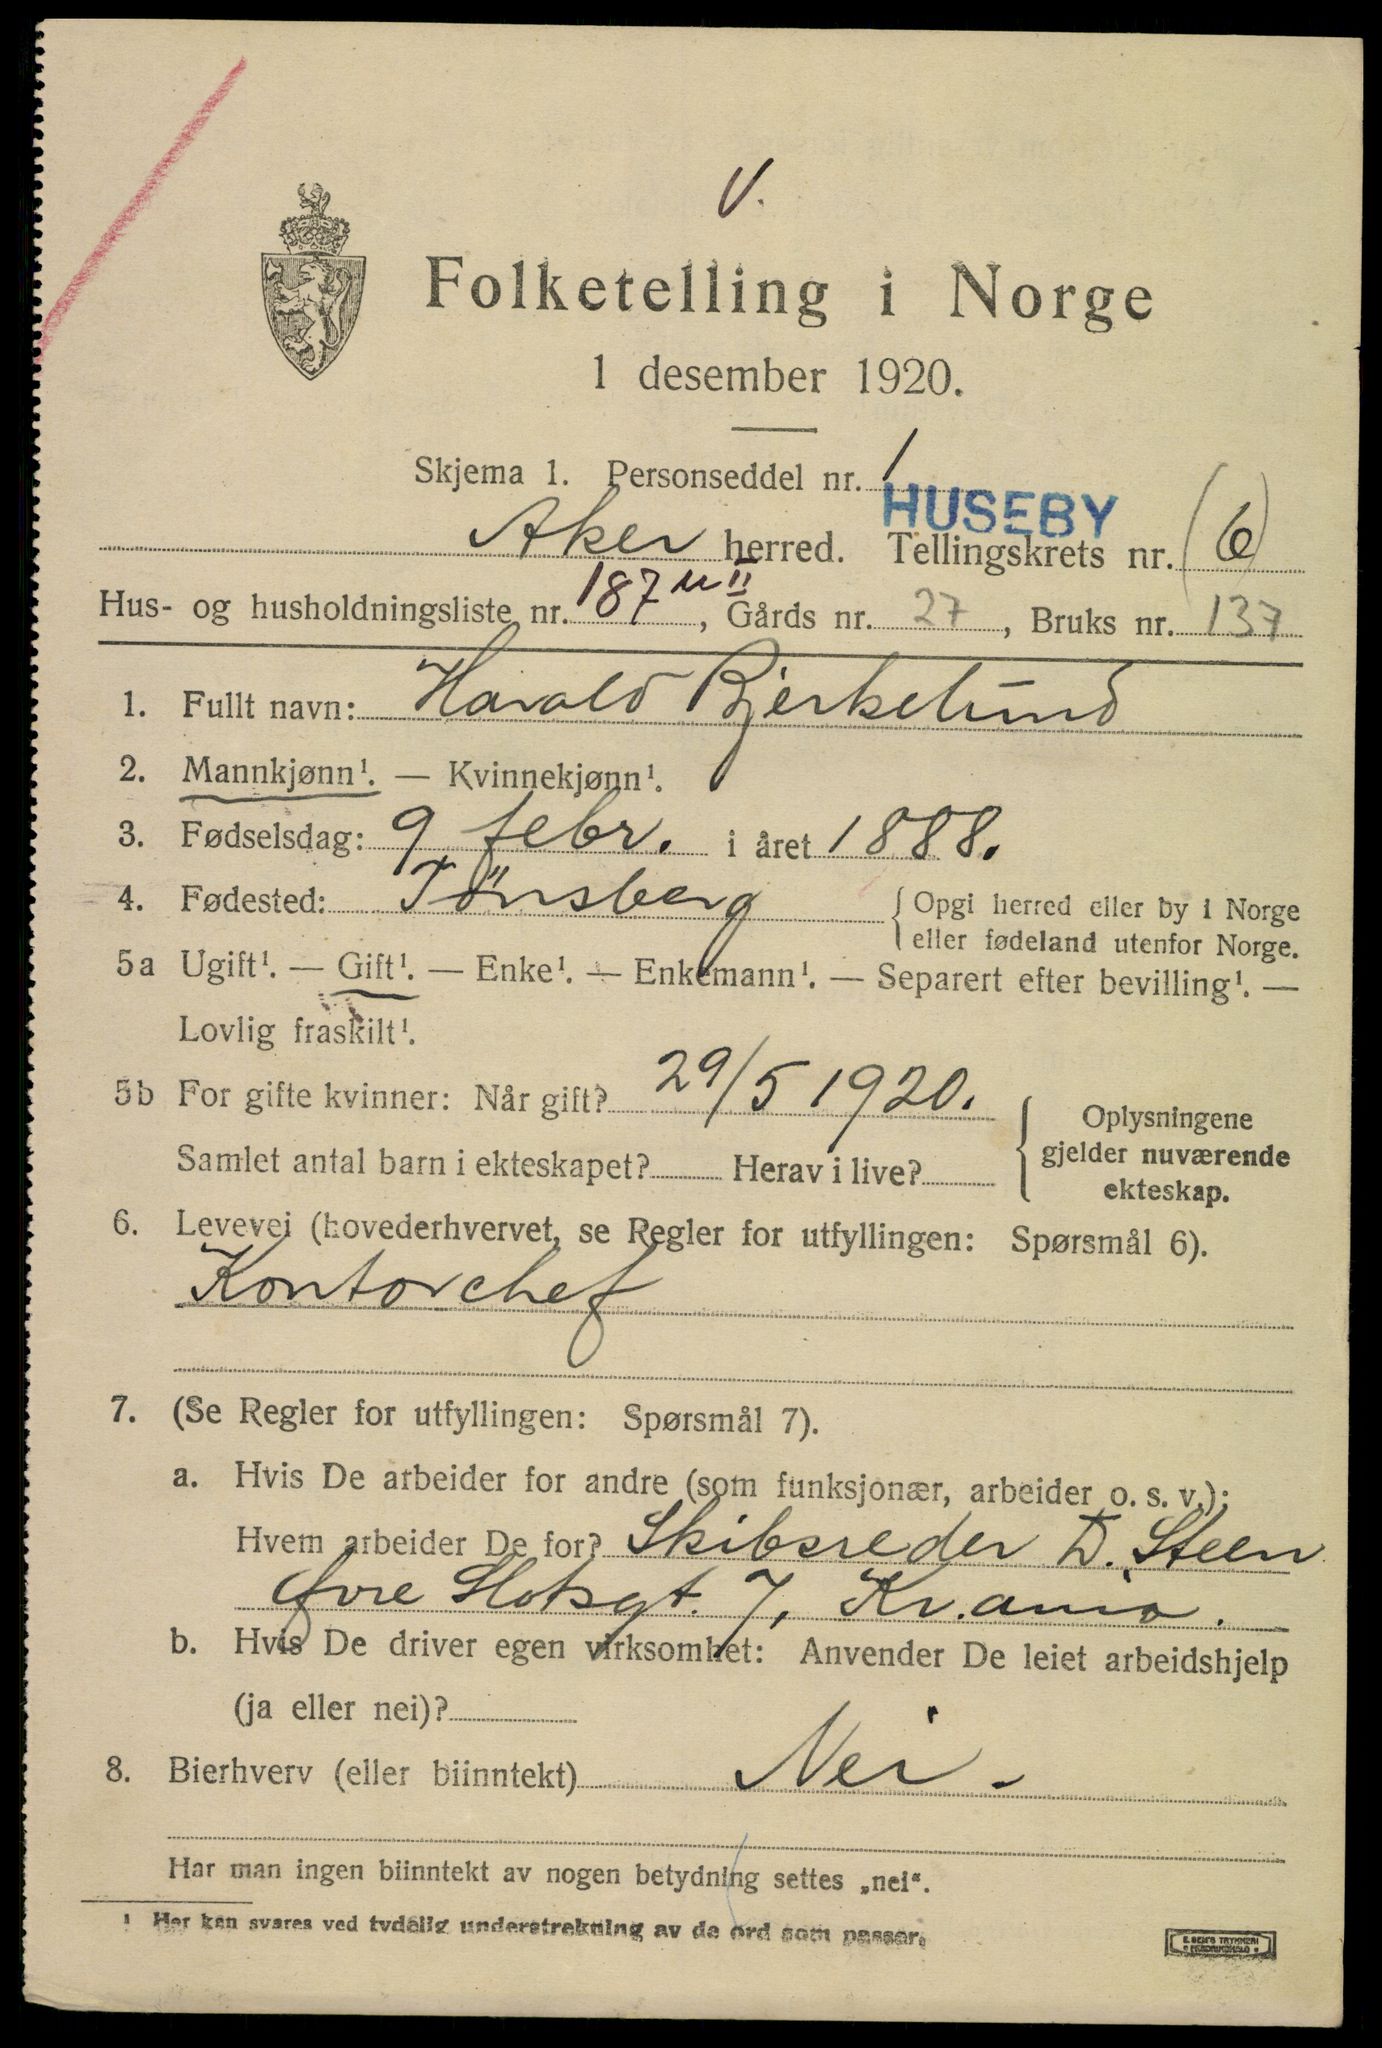 V.
Folketelling i Norge
1 desember 1920.
Skjema 1. Personseddel nr. 1
HUSEBY
Aker herred. Tellingskrets nr. (6)
Hus- og husholdningsliste nr. 187 II, Gårds nr. 27, Bruks nr. 137
1. Fullt navn: Harald Bjerkelund
2. Mannkjønn¹. — Kvinnekjønn¹.
3. Fødselsdag: 9 febr. i året 1888.
4. Fødested: Tönsberg { Opgi herred eller by i Norge
eller fødeland utenfor Norge.
5a Ugift¹. — Gift¹. — Enke¹. — Enkemann¹. — Separert efter bevilling¹. —
Lovlig fraskilt¹.
5b For gifte kvinner: Når gift? 29/5 1920. { Oplysningene
Samlet antal barn i ekteskapet? Herav i live? gjelder nuværende
ekteskap.
6. Levevei (hovederhvervet, se Regler for utfyllingen: Spørsmål 6).
Kontorchef
7. (Se Regler for utfyllingen: Spørsmål 7).
a. Hvis De arbeider for andre (som funksjonær, arbeider o. s. v.):
Hvem arbeider De for? Skibsreder D. Steen
Øvre Slotsgt. 7, Kr.ania.
b. Hvis De driver egen virksomhet: Anvender De leiet arbeidshjelp
(ja eller nei)?
8. Bierhverv (eller biinntekt) Nei.
Har man ingen biinntekt av nogen betydning settes „nei“.
¹ Her kan svares ved tydelig understrekning av de ord som passer.